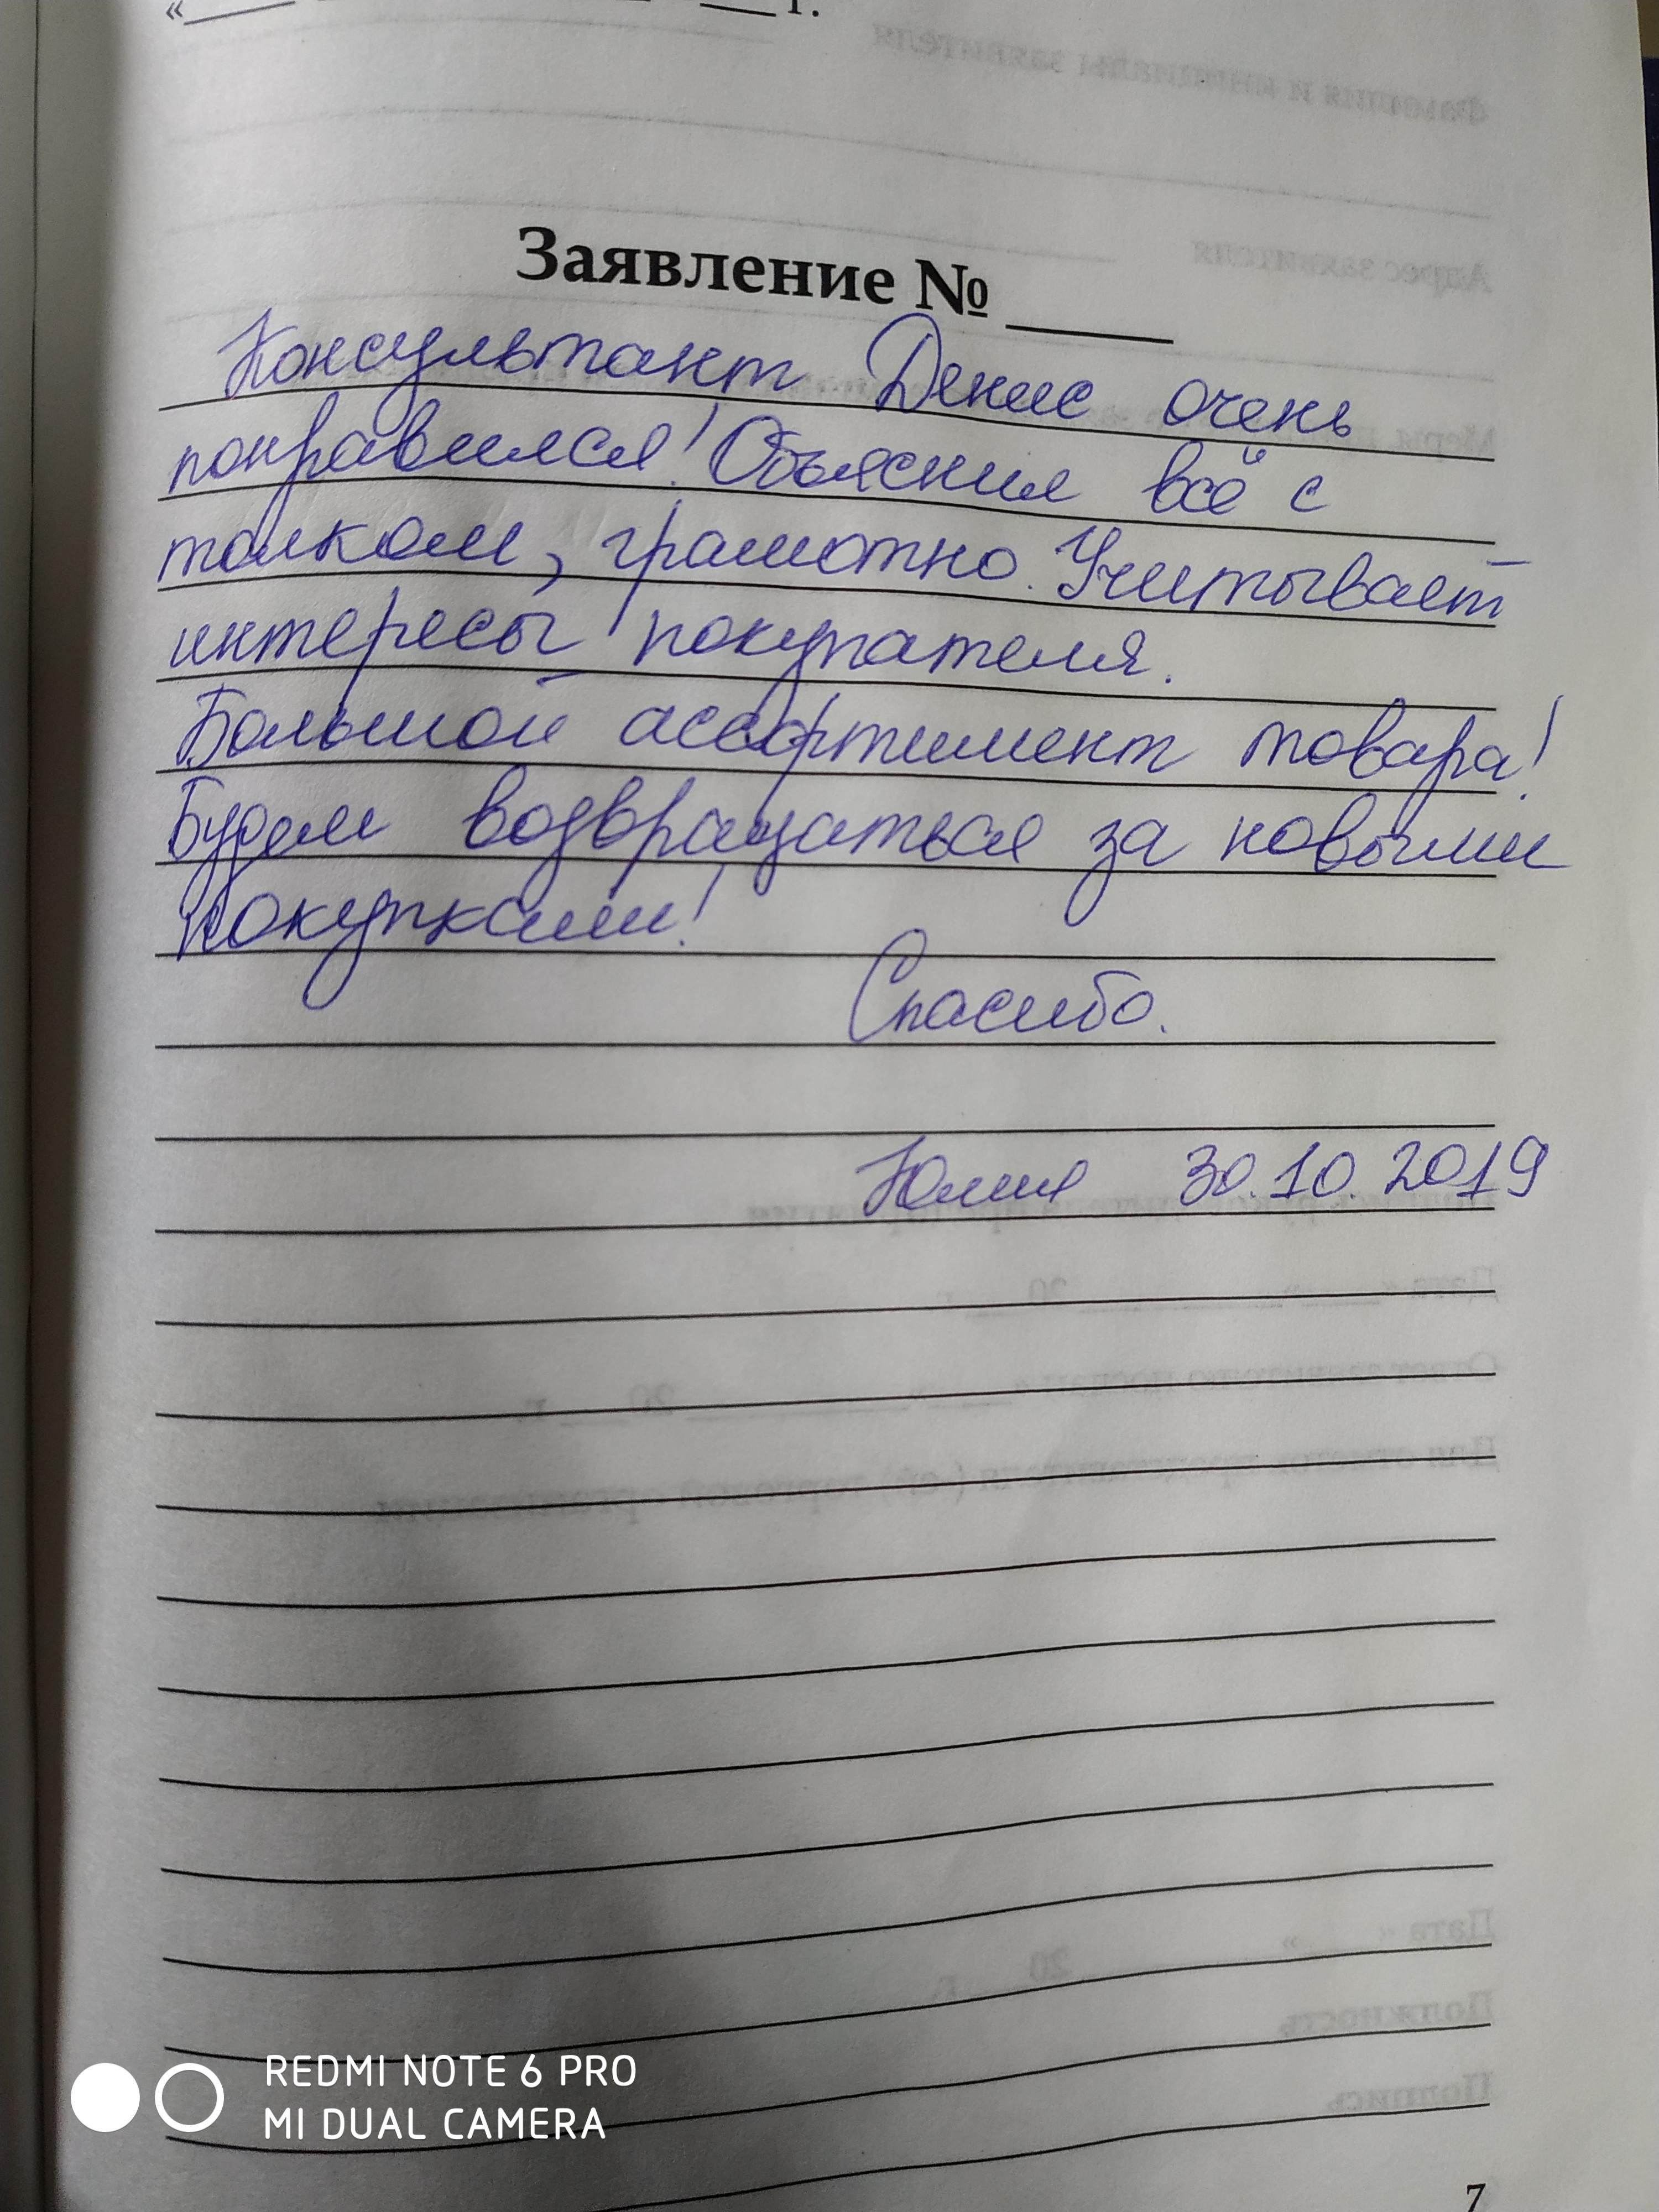 « г.
Заявление №
Консультант Денис очень
понравился! Объяснил всё с
толком, грамотно. Учитывает
интересы покупателя.
Большой ассортимент товара!
Будем возвращаться за новыми
покупками!
Спасибо.
Юлия 30.10.2019
REDMI NOTE 6 PRO
MI DUAL CAMERA
7